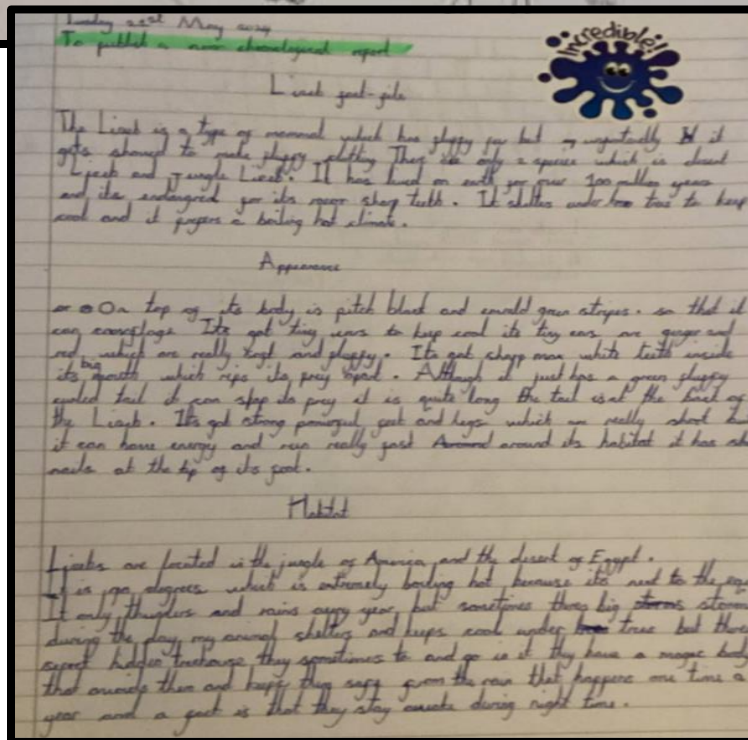 Tuesday 21st May 2024
To publish a non chronological report
Incredible!
fact-file
The is a type of mammal which has fluffy fur but unfortunately it
gets shaved to make fluffy clothing There are only 2 species which is desert
and Jungle It has lived on earth for over 100 million years
and its endangered for its sharp teeth. It shelters under tree to keep
cool and it prefers a boiling hot climate.
Appearance
On top of its body is pitch black and emerald green stripes. so that it
can Its got tiny ears to keep cool its tiny ears are ginger and
red, which are really and fluffy. Its got sharp white teeth inside
its big mouth which rips its prey apart. Although it just has a green fluffy
curled tail it can slap its prey it is quite long the tail is at the back of
the Its got strong powerful feet and legs which are really short
it can have energy and run really fast around its habitat it has
nails at the tip of its foot.
Habitat
are located in the jungle of America and the desert of Egypt.
It is degrees which is extremely boiling hot because its next to the
It only thunders and rains every year, but sometimes big storms
during the day my animal shelters and keeps cool under tree but
hidden treehouse they sometimes to and go in it they have a magic body
that them and keeps them safe from the rain that happens one time a
year and a fact is that they stay awake during night time.